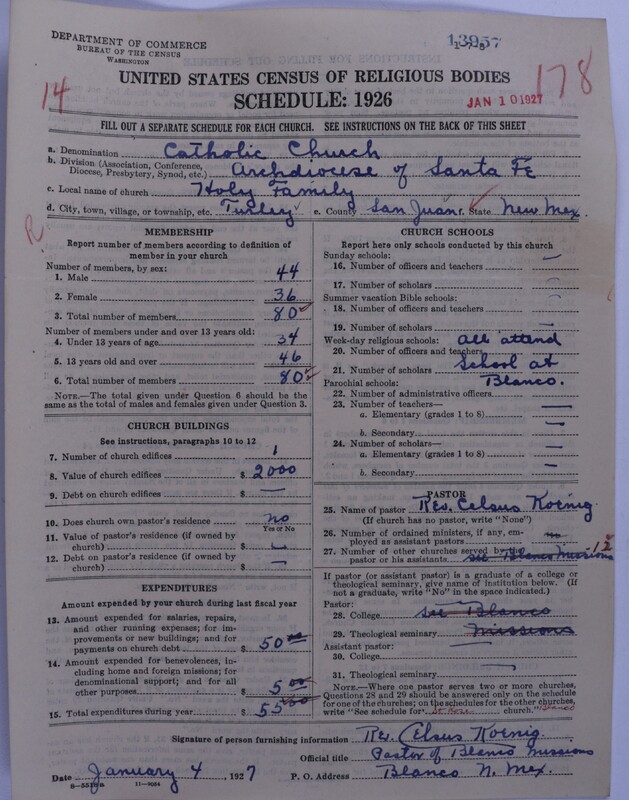 DEPARTMENT OF COMMERCE
BUREAU OF THE CENSUS
WASHINGTON
13957
14
178
UNITED STATES CENSUS OF RELIGIOUS BODIES
SCHEDULE: 1926
JAN 10 1927
FILL OUT A SEPARATE SCHEDULE FOR EACH CHURCH. SEE INSTRUCTIONS ON THE BACK OF THIS SHEET
a. Denomination Catholic Church
b. Division (Association, Conference, Diocese, Presbytery, Synod, etc.) Archdiocese of Santa Fé
c. Local name of church Holy Family
d. City, town, village, or township, etc. Turley e. County San Juan f. State New Mex.
R
MEMBERSHIP
Report number of members according to definition of
member in your church
Number of members, by sex:
1. Male 44
2. Female 36
3. Total number of members 80
Number of members under and over 13 years old:
4. Under 13 years of age 34
5. 13 years old and over 46
6. Total number of members 80
NOTE.—The total given under Question 6 should be
same as the total of males and females given under Question 3.
CHURCH BUILDINGS
See instructions, paragraphs 10 to 12
7. Number of church edifices 1
8. Value of church edifices $ 2000
9. Debt on church edifices $ —
10. Does church own pastor's residence no
Yes or No
11. Value of pastor's residence (if owned by
church) $ —
12. Debt on pastor's residence (if owned by
church) $ —
EXPENDITURES
Amount expended by your church during last fiscal year
13. Amount expended for salaries, repairs,
and other running expenses; for im-
provements or new buildings; and for
payments on church debt $ 50 00
14. Amount expended for benevolences, in-
cluding home and foreign missions; for
denominational support; and for all
other purposes $ 5 00
15. Total expenditures during year $ 55 00
CHURCH SCHOOLS
Report here only schools conducted by this church
Sunday schools:
16. Number of officers and teachers —
17. Number of scholars —
Summer vacation Bible schools:
18. Number of officers and teachers —
19. Number of scholars —
Week-day religious schools: all attend
20. Number of officers and teachers
21. Number of scholars School at
Parochial schools: Blanco.
22. Number of administrative officers
23. Number of teachers—
a. Elementary (grades 1 to 8) —
b. Secondary —
24. Number of scholars—
a. Elementary (grades 1 to 8) —
b. Secondary —
PASTOR
25. Name of pastor Rev. Celsus Koenig
(If church has no pastor, write "None")
26. Number of ordained ministers, if any, em-
ployed as assistant pastors no
27. Number of other churches served by the
pastor or his assistants see Blanco Missions 12
If pastor (or assistant pastor) is a graduate of a college or
theological seminary, give name of institution below. (If
not a graduate, write "No" in the space indicated.)
Pastor:
28. College see Blanco
29. Theological seminary missions
Assistant pastor:
30. College —
31. Theological seminary —
NOTE.—Where one pastor serves two or more churches,
Questions 28 and 29 should be answered only on the schedule
for one of the churches; on the schedules for the other churches,
write "See schedule for St Rose church." Blanco
Signature of person furnishing information Rev. Celsus Koenig
Official title Pastor of Blanco missions
Date January 4, 1927 P. O. Address Blanco N. Mex.
11—9054